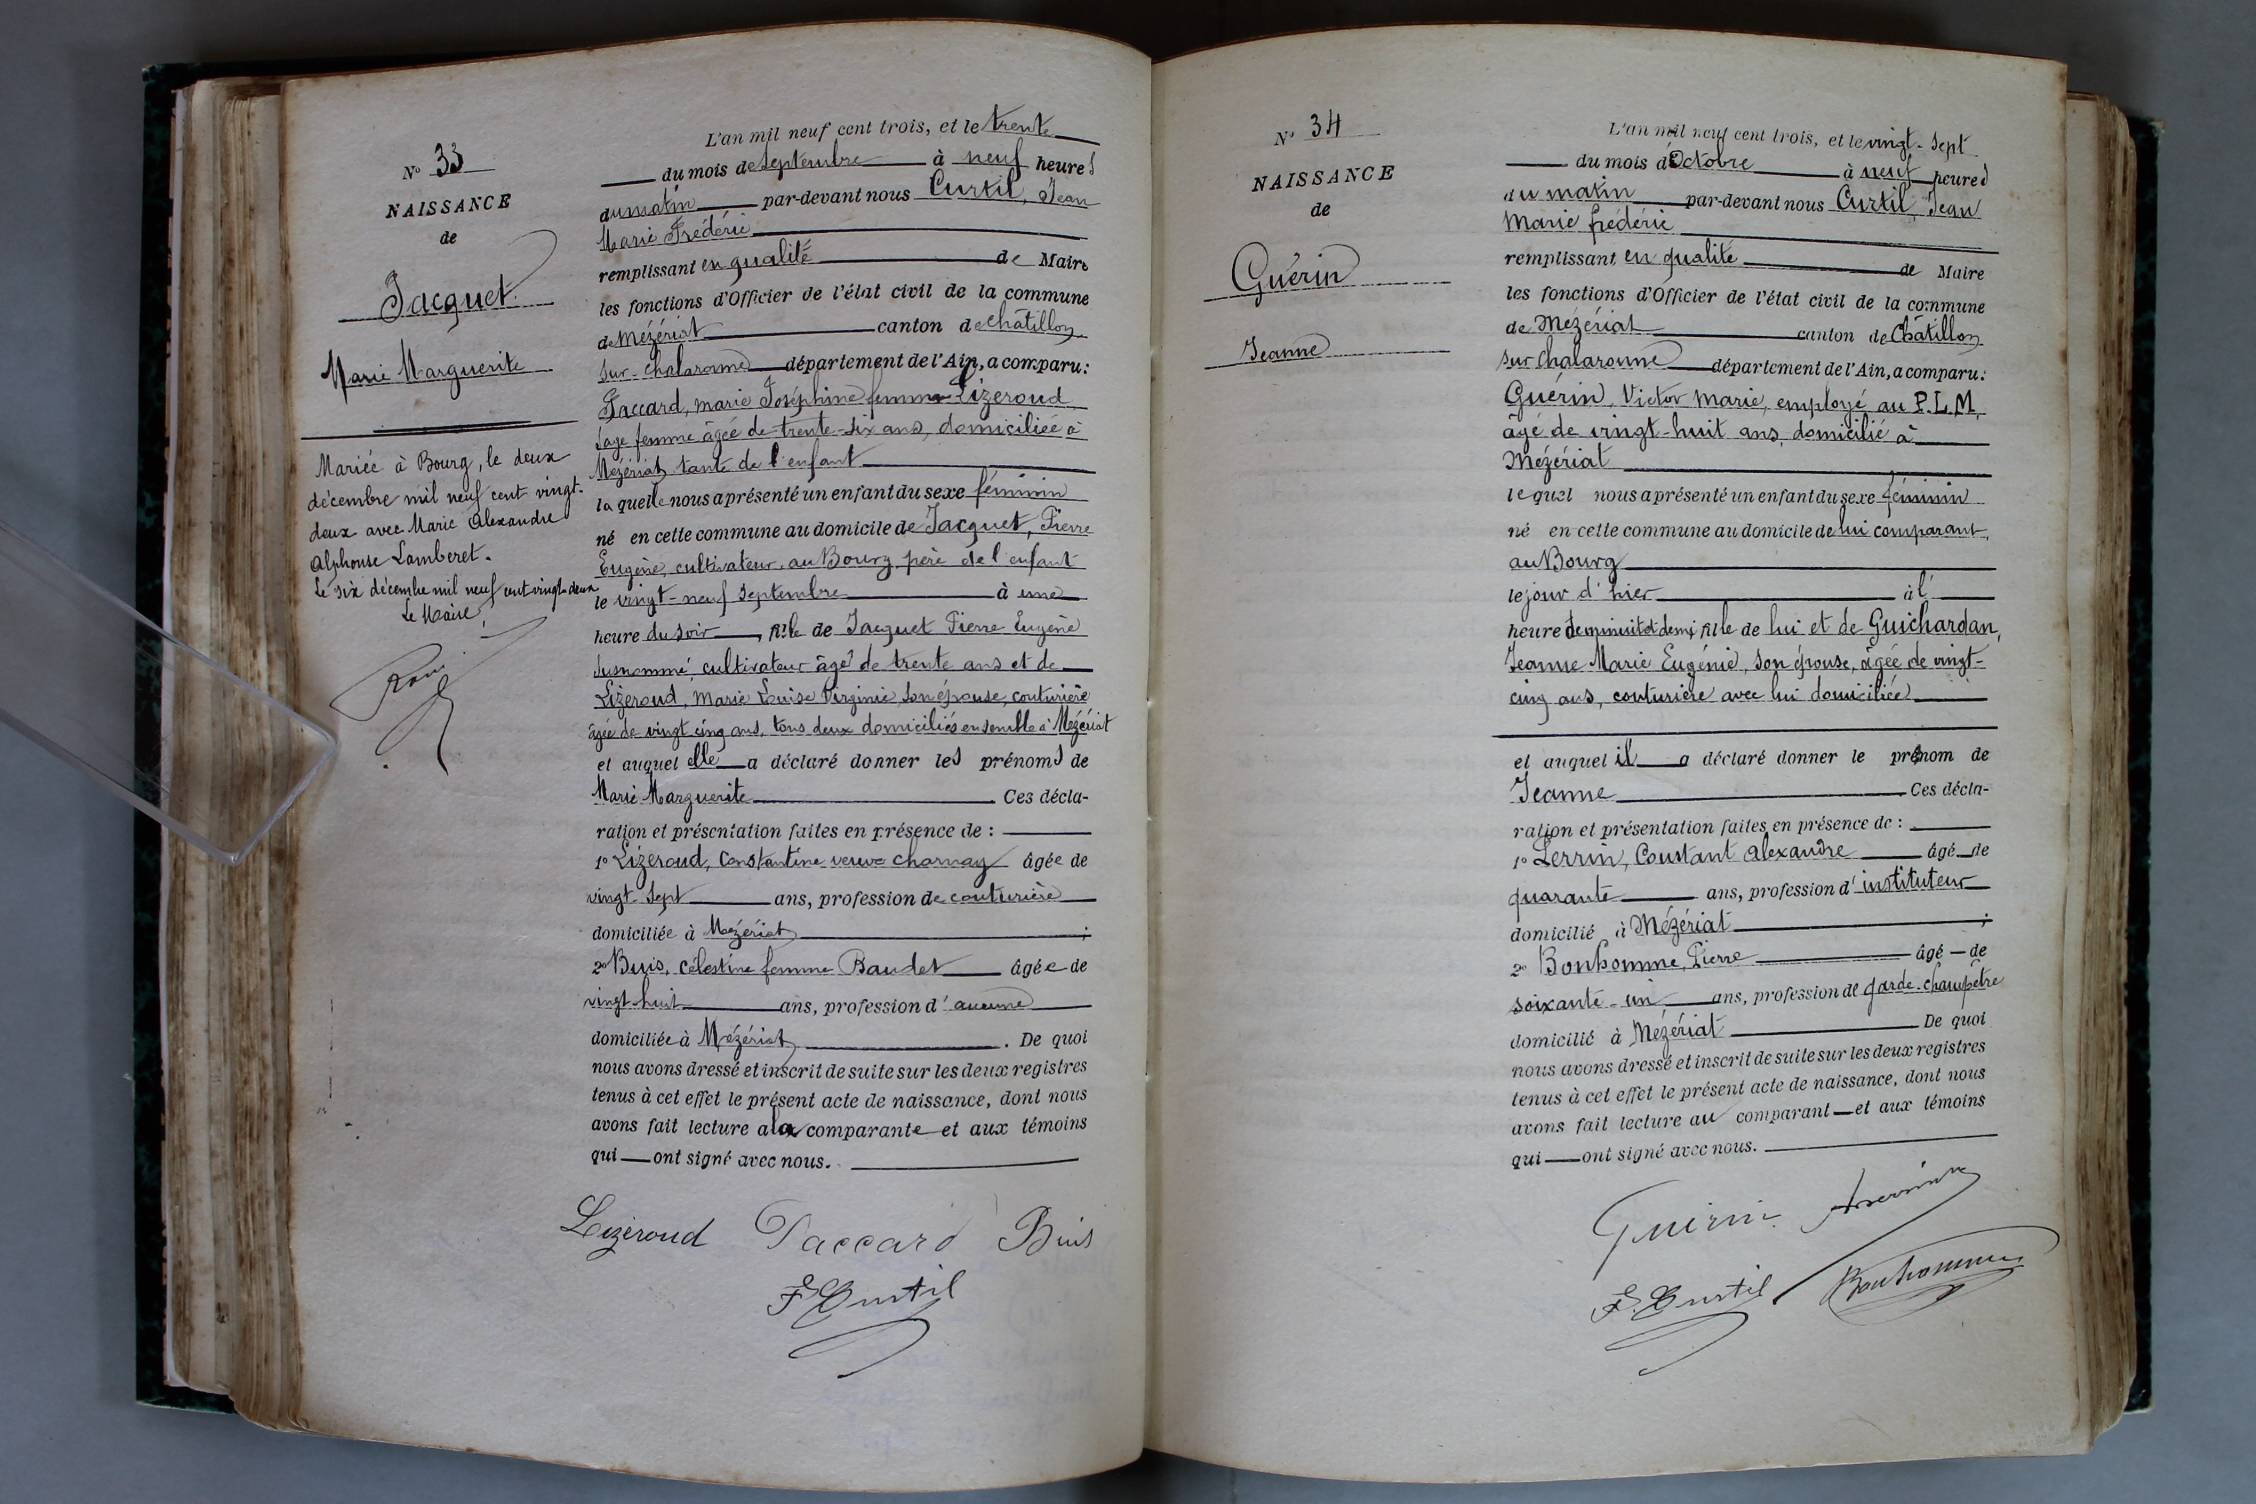 N° 33
NAISSANCE
de
Jacquet
Marie Marguerite
Mariée à Bourg, le deux
décembre mil neuf cent vingt-
deux avec Marie Alexandre
Alphonse Lamberet.
Le six décembre mil neuf cent vingt-deux
Le Maire,
L'an mil neuf cent trois, et le trente
du mois de septembre à neuf heures
du matin par-devant nous Curtil, Jean
Marie Frédéric
remplissant en qualité de Maire
les fonctions d'Officier de l'état civil de la commune
de Mézériat canton de Châtillon
sur-chalaronne département de l'Ain, a comparu:
Paccard, marie Joséphine femme Lizeroud
sage femme âgée de trente-six ans, domiciliée à
Mézériat, tante de l'enfant
la quelle nous a présenté un enfant du sexe féminin
né en cette commune au domicile de Jacquet, Pierre
Eugène, cultivateur, au Bourg, père de l'enfant
le vingt-neuf septembre à une
heure du soir, fille de Jacquet Pierre Eugène
susnommé, cultivateur âgé de trente ans et de
Lizeroud, Marie Louise Virginie, son épouse, couturière
âgée de vingt cinq ans, tous deux domiciliés ensemble à Mézériat
et auquel elle a déclaré donner les prénoms de
Marie Marguerite Ces décla-
ration et présentation faites en présence de :
1° Lizeroud, Constantine veuve charnay âgée de
vingt sept ans, profession de couturière
domiciliée à Mézériat ;
2° Buis, célestine femme Baudet âgée de
vingt-huit ans, profession d'aucune
domiciliée à Mézériat . De quoi
nous avons dressé et inscrit de suite sur les deux registres
tenus à cet effet le présent acte de naissance, dont nous
avons fait lecture a la comparante et aux témoins
qui ont signé avec nous.
Lizeroud Paccard Buis
F Curtil
N° 34
NAISSANCE
de
Guérin
Jeanne
L'an mil neuf cent trois, et le vingt-sept
du mois d'Octobre à neuf heures
du matin par-devant nous Curtil, Jean
Marie frédéric
remplissant en qualité de Maire
les fonctions d'Officier de l'état civil de la commune
de Mézériat canton de Châtillon
sur chalaronne département de l'Ain, a comparu:
Guérin, Victor Marie, employé au P.L.M,
âgé de vingt-huit ans, domicilié à
Mézériat
lequel nous a présenté un enfant du sexe féminin
né en cette commune au domicile de lui comparant,
au Bourg
le jour d'hier à l'
heure de minuit et demi fille de lui et de Guichardan,
Jeanne Marie Eugénie, son épouse, âgée de vingt-
cinq ans, couturière avec lui domiciliée
et auquel il a déclaré donner le prénom de
Jeanne Ces décla-
ration et présentation faites en présence de :
1° Perrin, Constant Alexandre âgé de
quarante ans, profession d'instituteur
domicilié à Mézériat ;
2° Bonhomme, Pierre âgé de
soixante-un ans, profession de garde-champêtre
domicilié à Mézériat De quoi
nous avons dressé et inscrit de suite sur les deux registres
tenus à cet effet le présent acte de naissance, dont nous
avons fait lecture au comparant et aux témoins
qui ont signé avec nous.
Guérin
F. Curtil Bonhomme